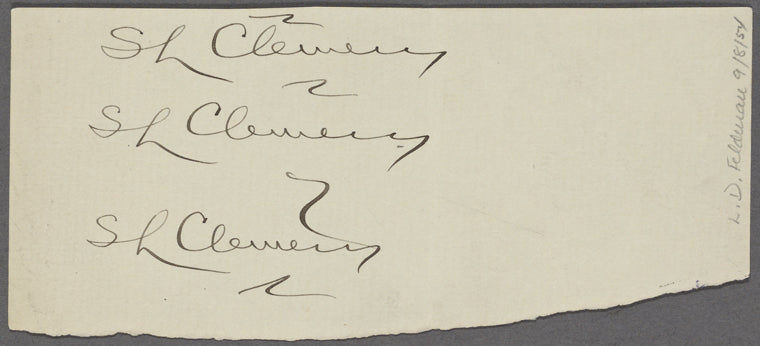 SL Clemens
SL Clemens
SL Clemens
L. D. Feldman 9/8/54